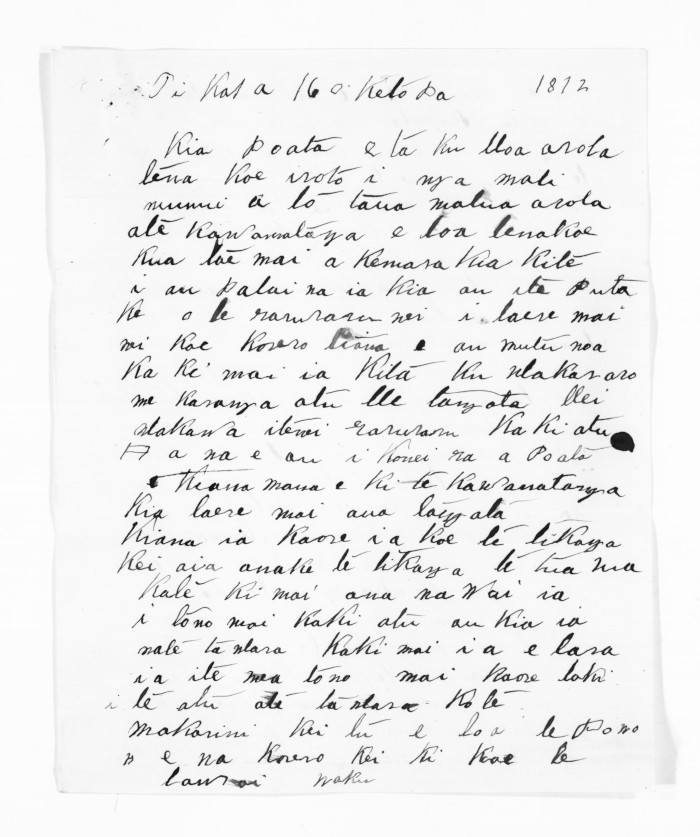 Ti Kata 16 Oketopa 1872
Kia Poata e ta ku Hoa aroha
tena koe iroto i nga mate
nunui a to taua matua aroha
ate Kawanatanga e hoa tenakoe
kua tae mai a Kemara kia kite
i au patai na ia kia au ite Puta
ke o te raruraru nei i haere mai
nei koe korero tiana e au mutu noa
ka ki mai ia kita ku whakaaro
me karanga atu he tangata hei
whakawa itenei raruraru Kaki atu
a na e au i konei ra a Poata
Kiana mana e ki te Kawanatanga
kia haere mai aua tangata
Kiana ia kaore ia koe te tikanga
kei aia anake te tikanga te tua ma
kate ki mai ana na wai ia
i tono mai kaki atu au kia ia
nate ta Mara kaki mai ia e hara
ia ite mea tono mai kaore hoki
i te atu ate ta Mara kote
Makarini kei hu e hoa te pono
o e na korero kei ki koe he
tawai naku